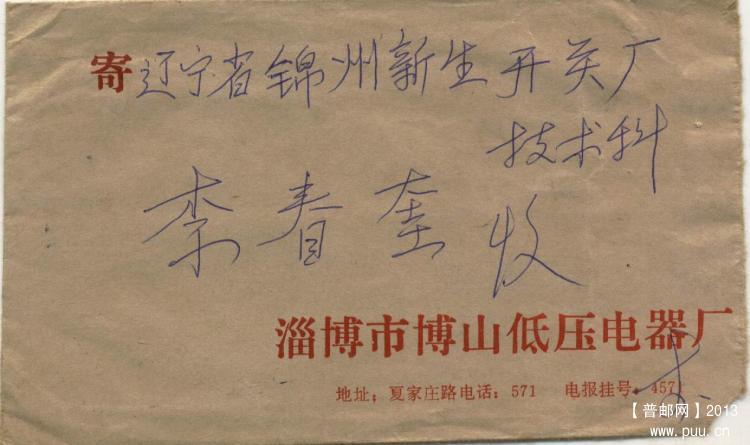 寄 辽宁省锦州新生开关厂
技术科
李春奎 收
淄博市博山低压电器厂
地址：夏家庄路电话：571 电报挂号：4571
【普邮网】2013
www.puu.cn